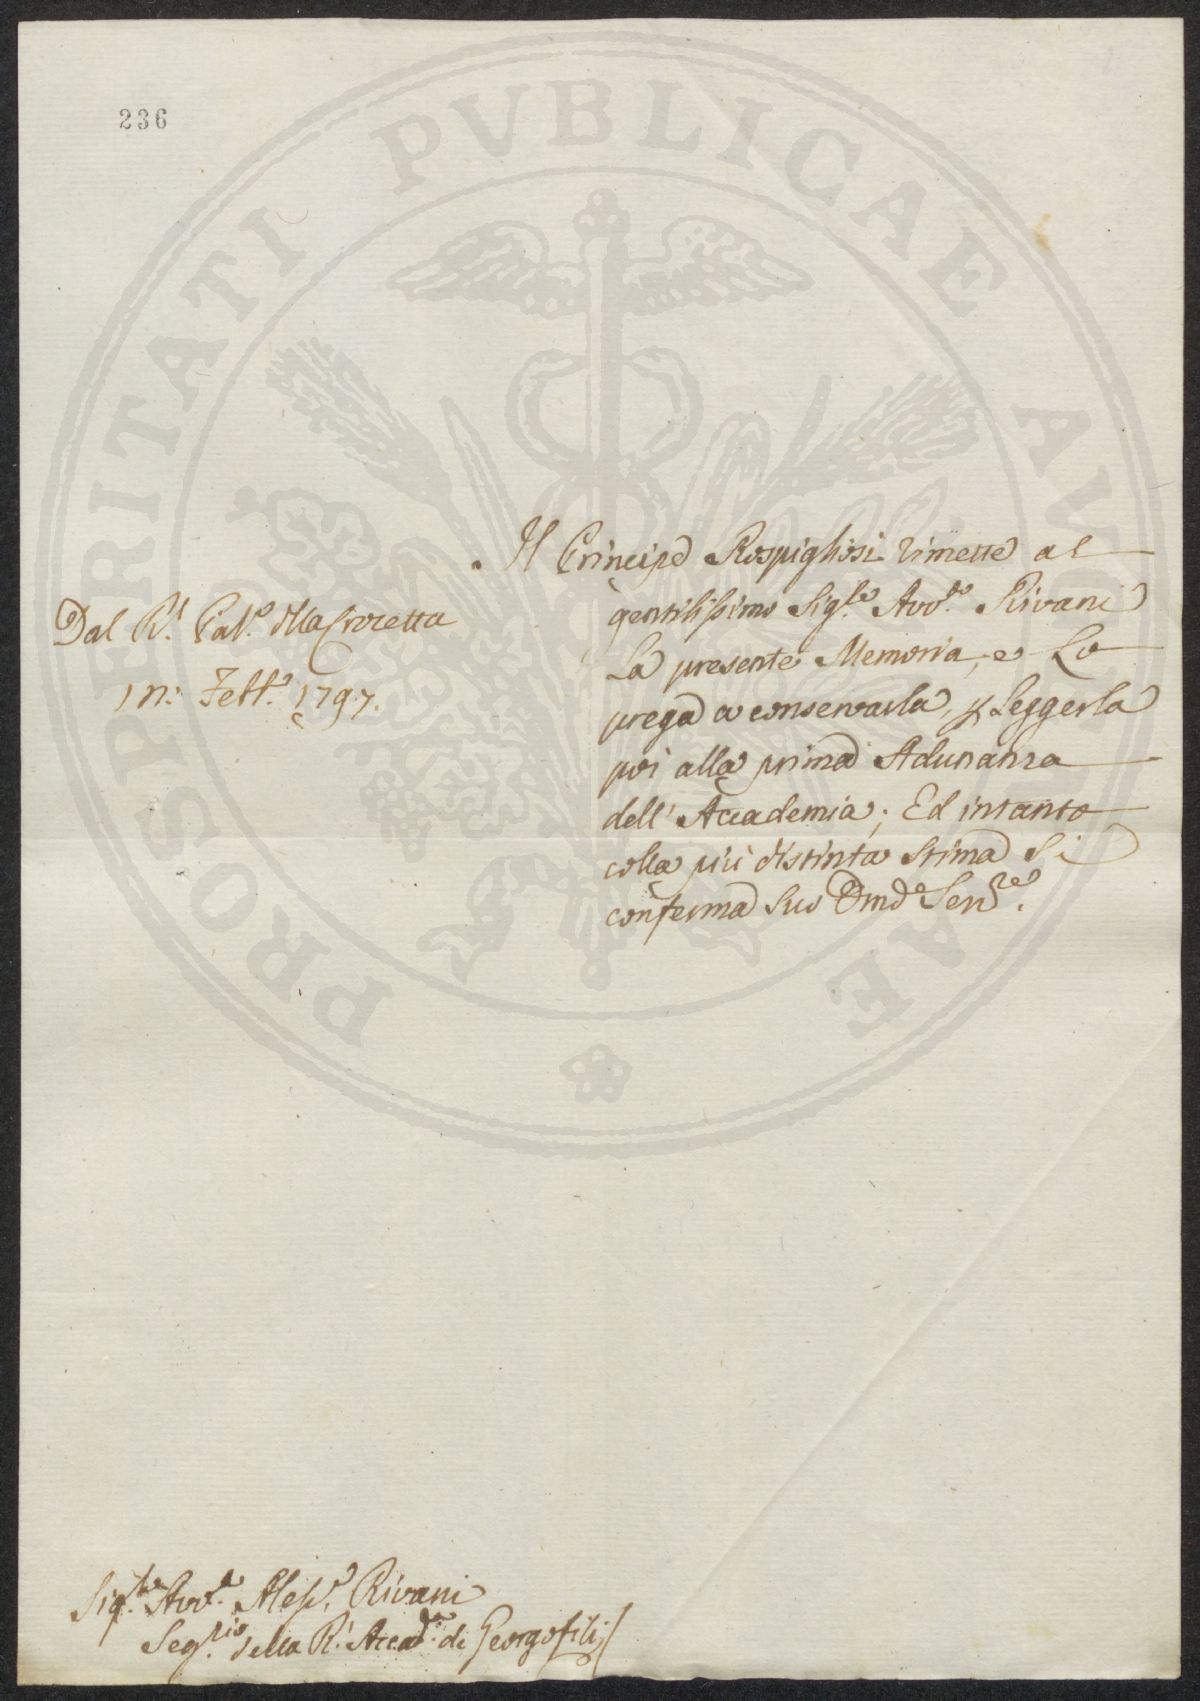 236
PROSPERITATI PVBLICAE AVGENDAE
Il Principe Rospigliosi rimette al
gentilissimo Sig.re Avv.to Rivani
La presente Memoria, e Lo
prega a conservarla, p Leggerla
poi alla prima Adunanza
dell' Accademia; Ed intanto
colla più distinta stima Si
conferma Suo Serv.re.
Dal R.l Pal.o
1797.
Sig.re Avv.to Aless.o Rivani
Seg.rio della R.l Accad.a de Georgofili